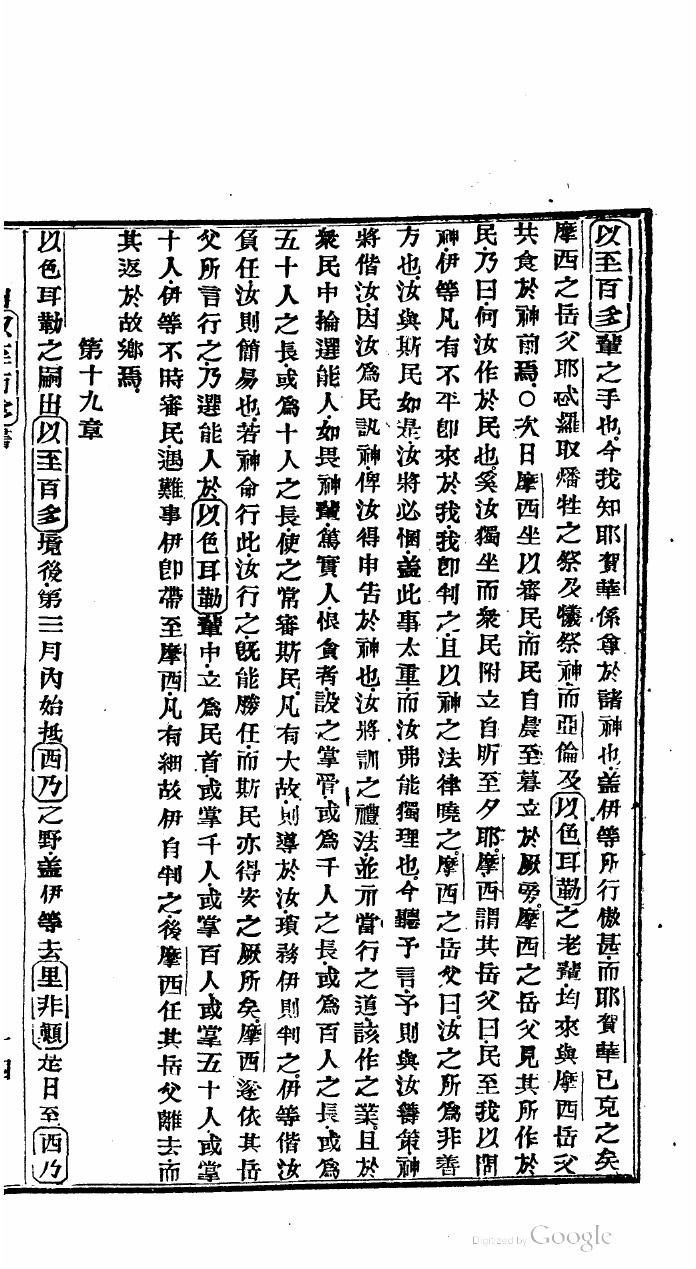 以至百多輩之手也。今我知耶賀華係尊於諸神也。蓋伊等所行傲甚。而耶賀華已克之矣
摩西之岳父耶忒羅取燔牲之祭及犧祭神。而亞倫及以色耳勒之老輩。均來與摩西岳父
共食於神前焉。○次日摩西坐以審民。而民自晨至暮立於厥旁。摩西之岳父見其所作於
民。乃曰。何汝作於民也。奚汝獨坐而衆民附立自昕至夕耶。摩西謂其岳父曰。民至我以問
神。伊等凡有不平卽來於我。我卽判之。且以神之法律曉之。摩西之岳父曰。汝之所爲非善
方也。汝與斯民如是。汝將必悃。蓋此事太重而汝弗能獨理也。今聽予言。予則與汝籌策。神
將偕汝。因汝爲民訊神。俾汝得申告於神也。汝將訓之禮法。並示當行之道。該作之業。且於
衆民中掄選能人。如畏神輩。萬實人。恨貪者。設之掌管。或爲千人之長。或爲百人之長。或爲
五十人之長。或爲十人之長。使之常審斯民。凡有大故。則導於汝。瑣務伊則判之。伊等偕汝
負任。汝則簡易也。若神命行此。汝行之。旣能勝任。而斯民亦得安之厥所矣。摩西遂依其岳
父所言行之。乃選能人於以色耳勒輩中。立爲民首。或掌千人。或掌百人。或掌五十人。或掌
十人。伊等不時審民。遇難事伊卽帶至摩西。凡有細故伊自判之。後摩西任其岳父離去。而
其返於故鄉焉。
第十九章
以色耳勒之嗣出以至百多境後。第三月內始抵西乃之野。蓋伊等去里非顚。是日至西乃
Digitized by Google